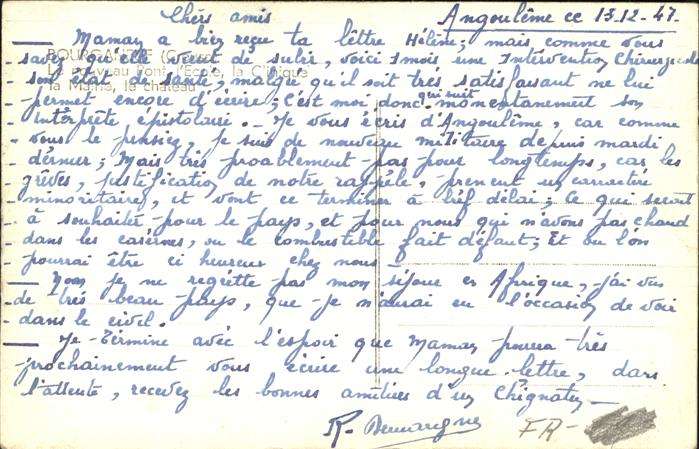 Chèrs amis
Angoulême ce 13-12-47.
Maman a bien reçue ta lêttre Hélène; mais comme vous
savez qu'elle vient de subir, voici 1 mois une Intervention Chirurgicale
son état de santé, malgré qu'il soit très satisfaisant ne lui
permet encore d'écrire; C'est moi donc qui suit momentanément son
interprète épistolaire. - Je vous écris d'Angoulême, car comme
vous le pensiez, je suis de nouveau militaire depuis mardi
dérnier; Mais très proablement pas pour longtemps, car les
grèves, justification de notre rappèle, prenent un carractère
minoritaire, et vont ce terminer à bréf délai; Ce que serait
à souhaiter pour le pays, et pour nous qui n'avons pas chaud
dans les casèrnes, ou le combustible fait défaut; Et ou l'on
pourrai être ci heureux chez nous
Non je ne regrètte pas mon séjour en Afrique, j'ai vus
de très beau pays, que je n'aurai eu l'occasion de voir
dans le civil.
Je Términe avec l'espoir que Maman pourra très
prochainement vous écrire une longue lettre, dans
l'attente, recevez les bonnes amitiées d'un Chignatou
R.
FR-
BOURGANEUF (Creuse)
Le nouveau Pont, l'Ecole, la Clinique
la Mairie, le château